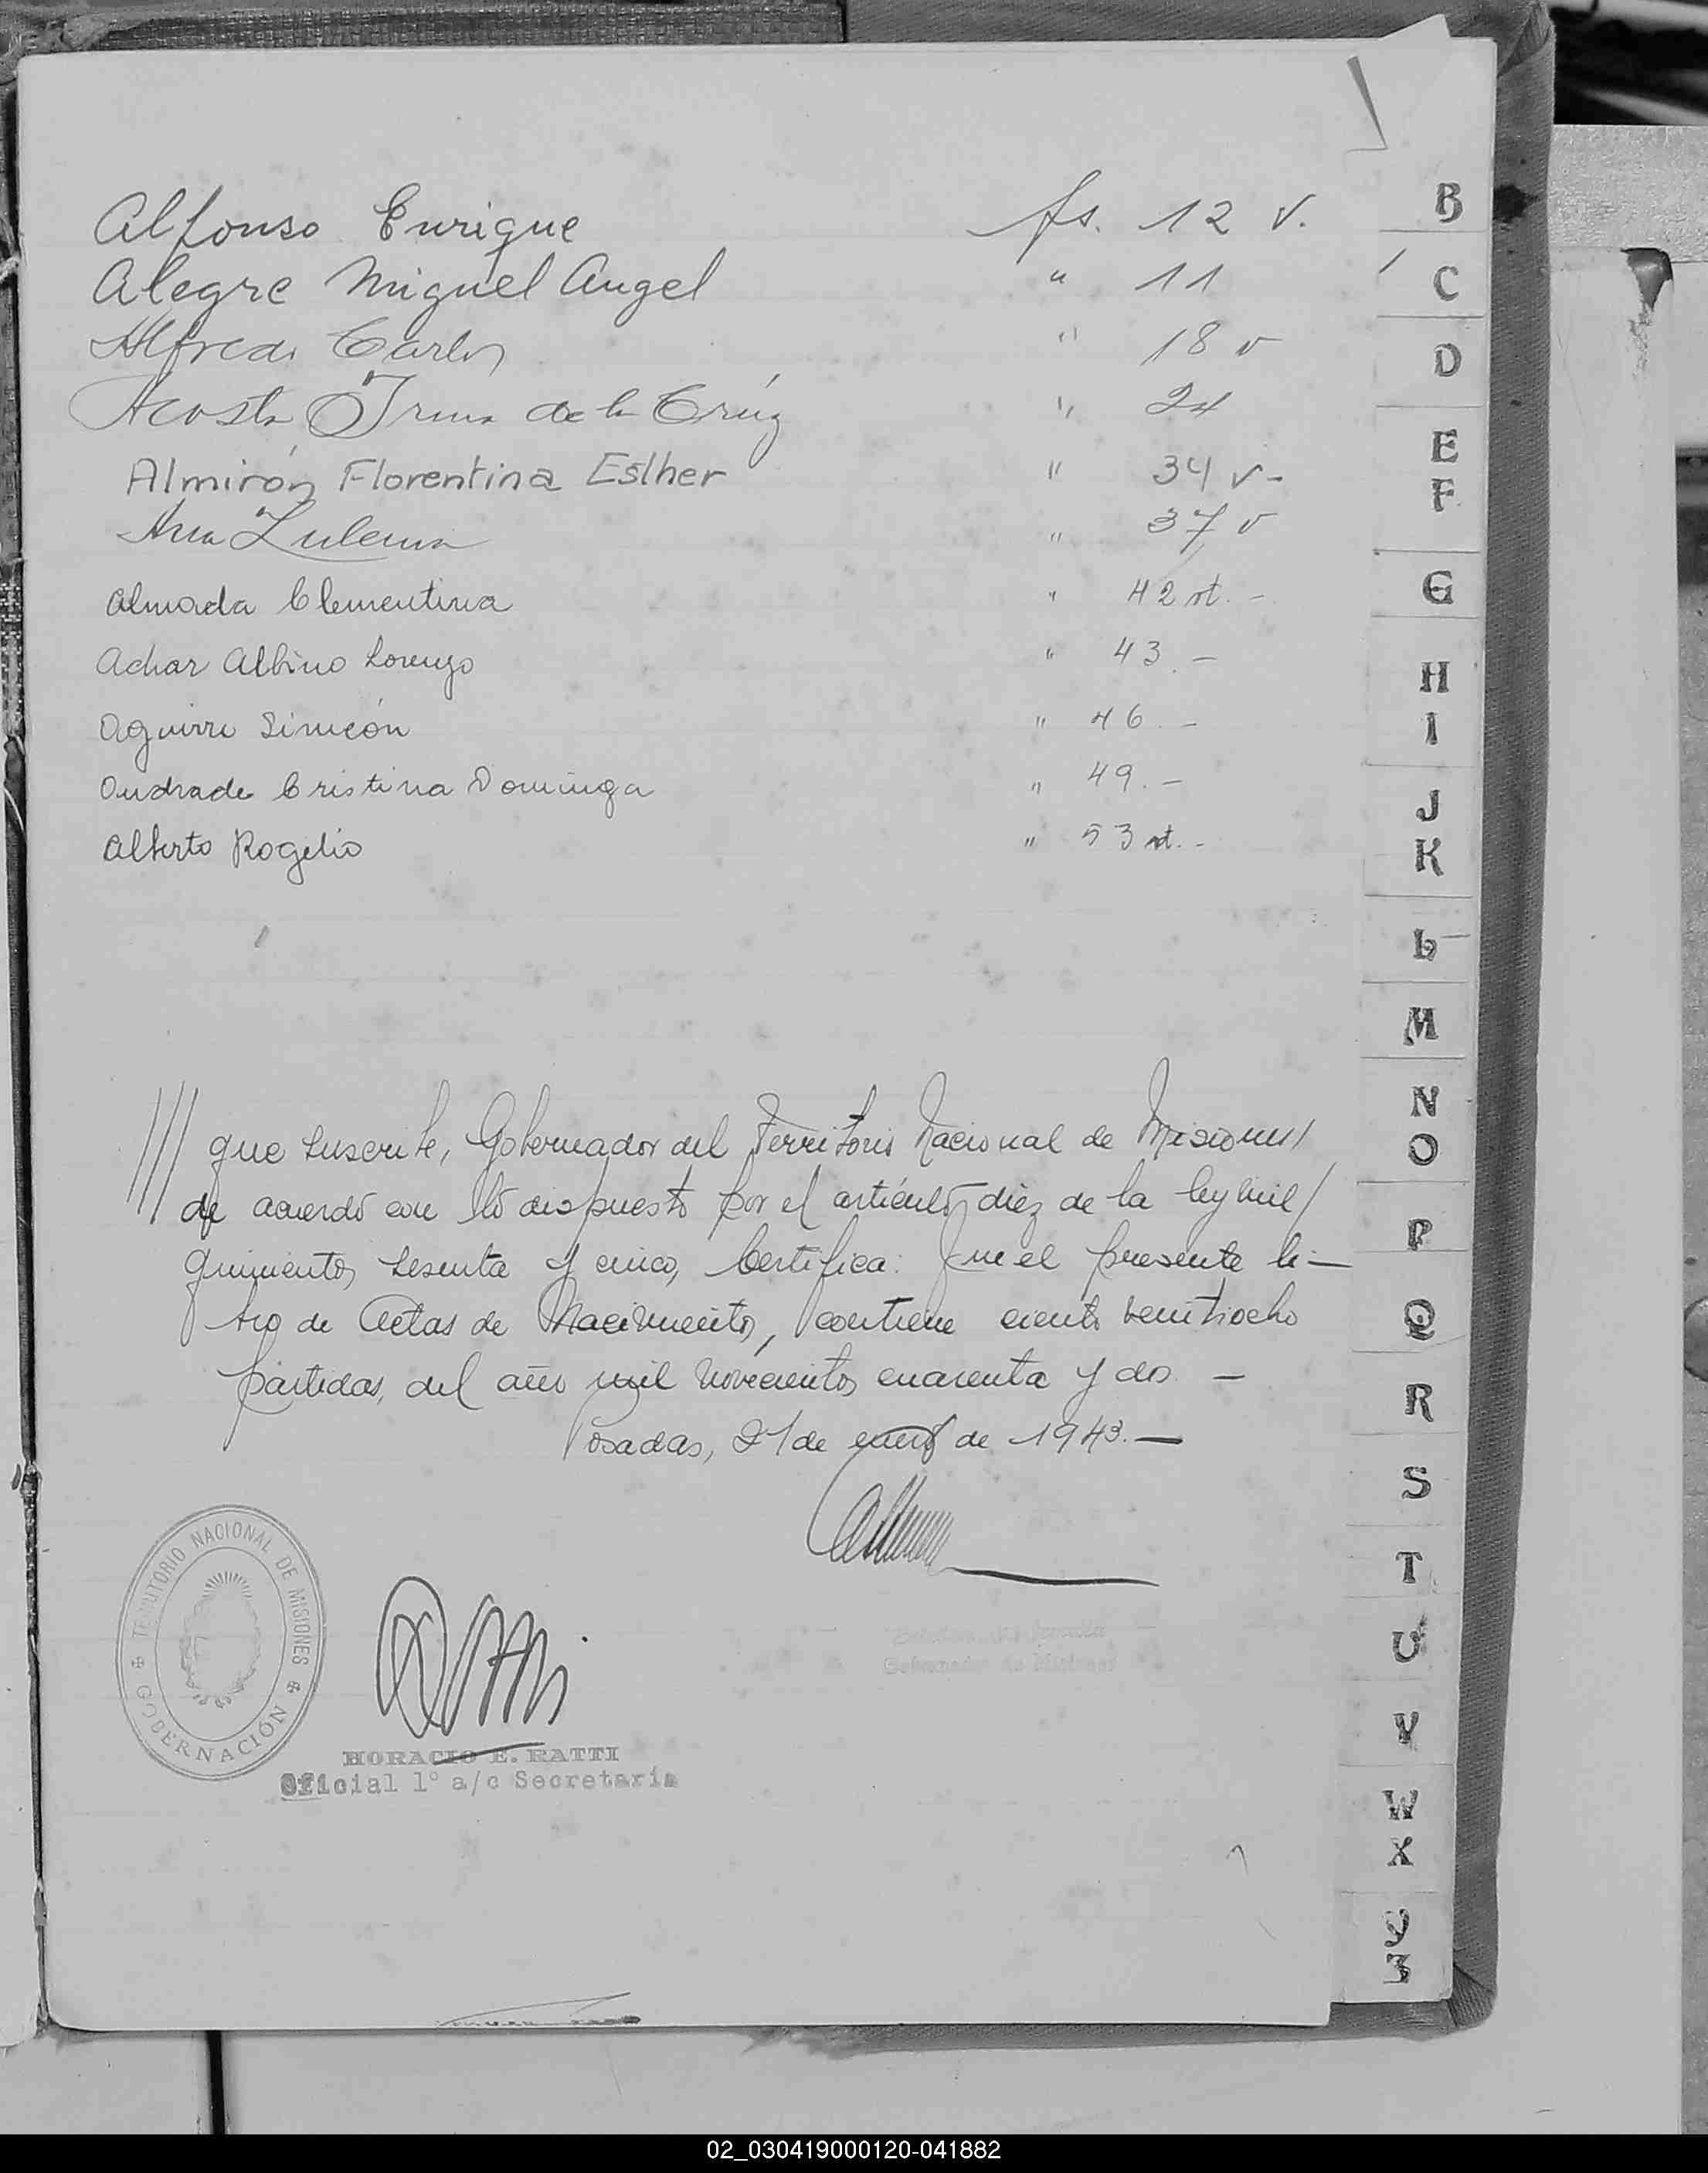 Alfonso Enrique fs. 12 v.
Alegre Miguel Angel " 11
Alfredo Carlos " 18 v
Acosta Irma de la Crúz " 24
Almirón Florentina Eslher " 34 v-
Ana Zulema " 37 v
Almada Clementina " 42 vt.-
Achar Albino Lorenzo " 43.-
Aguirre Simeón " 46.-
Andrade Cristina Dominga " 49.-
Alberto Rogelio " 53 vt.-
que suscribe, Gobernador del Territorio Nacional de Misiones/
de acuerdo con lo dispuesto por el artículo diez de la ley mil/
quinientos sesenta y cinco, Certifica: Que el presente li-
bro de Actas de Nacimientos, contiene ciento veintiocho
partidas, del año mil novecientos cuarenta y dos. -
Posadas, 21 de enero de 1943.-
TERRITORIO NACIONAL DE MISIONES
GOBERNACIÓN
Gobernador de Misiones
HORACIO E. RATTI
Oficial 1° a/c Secretaría
B
C
D
E
F
G
H
I
J
K
L
M
N
O
P
Q
R
S
T
U
V
W
X
Y
Z
02_030419000120-041882